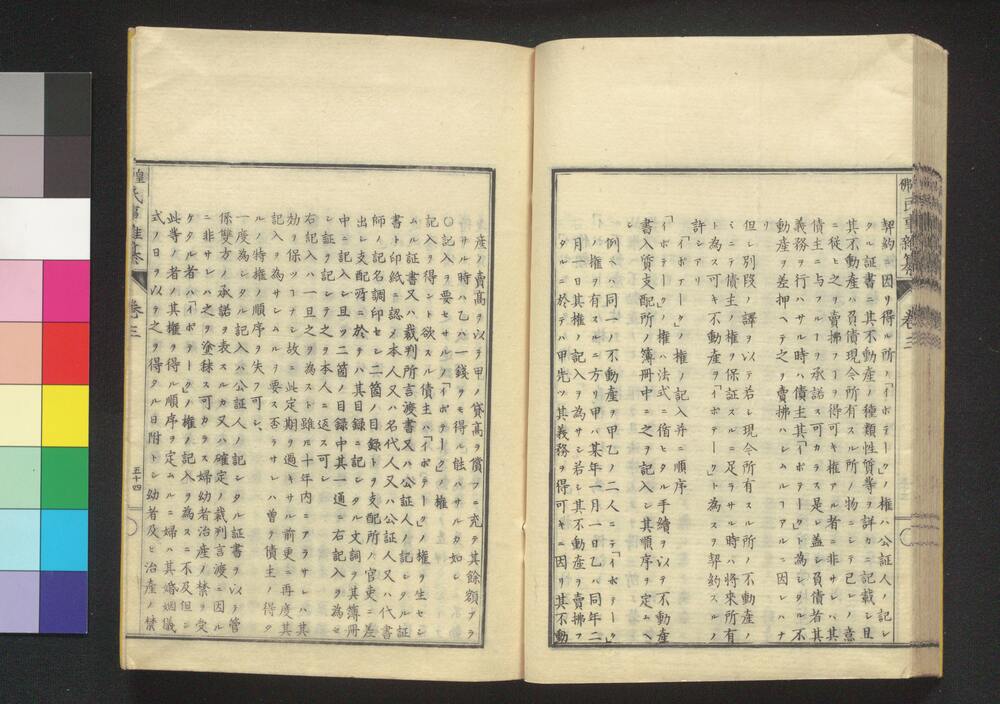 契約ニ因リ得ル所ノ「イポテーク」ノ権ハ公証人ノ記シ
タル証書ニ其不動産ノ種類性質等ヲ詳カニ記載シ且
其不動産ハ負債現今所有スル所ノ物ニシテ己レノ意
ニ従ヒ之ヲ賣拂フーヲ得可キ権アル者ニ非サレハ其
債主ニ与フルーヲ承諾ス可カラス是レ盖シ負債者其
義務ヲ行ハサル時ハ債主其「イポテーク」ト為シタル不
動産ヲ差押ヘテ之ヲ賣拂ハシムルフアルニ因レハナ
リ
但シ別段ノ譯ヲ以テ若シ現今所有スル所ノ不動産ノ
ミニテ債主ノ権ヲ保証スルニ足ラサル時ハ将來所有
ト為ス可キ不動産ヲ「イポテーク」ト為スヲ契約スルノ
許シアリ
「イポテーク」ノ権ノ記入并ニ順序
「イポテーク」ノ権ハ法式ニ循ヒタル手續ヲ以テ不動産
書入質支配所ノ簿冊中ニ之ヲ記入シ其順序ヲ定ム
例ヘハ同一ノ不動産ヲ甲乙ノ二人ニテ「イポテーク」
ノ権ヲ有スルニ方リ甲ハ某年一月一日乙ハ同年二
月一日其権ノ記入ヲ為サン若シ其不動産ヲ賣拂フ
タルニ於テハ甲先ツ其義務ヲ得可キニ因リ其不動
産ノ賣高ヲ以テ甲ノ貸高ヲ償フニ充テ其餘額アラ
サル時ハ乙ハ一錢ヲモ得ル能ハサルカ如シ
〇記入ヲ要セサル「イポテーク」ノ権
記入ヲ得ント欲スル債主ハ「イポテーク」ノ権ヲ生セシ
ムル証書又ハ裁判所言渡書又ハ公証人ノ記シタル証
書ト印紙ニ認メ本人又ハ名代人又ハ公証人又ハ代書
師ノ記名調印セシ二箇ノ目録トヲ支配所ノ官吏ニ差
出シ支配所ニ於テハ其目録ニ記シタル文詞ヲ其簿冊
中ニ記入シ且ヲ二箇ノ目録中其一通ニ右記入ヲ為セ
シ証ヲ記シテ之ヲ本人ニ返ス可シ
右記入ハ一旦之ヲ為スト雖𪜈十年内ニアラサレハ其
効ヲ保ツーナシ故ニ此定期ヲ過キサル前更ニ再度其
記入ヲ為サシムルーヲ要ス否ラサレハ曽テ債主ノ得タ
ルノ特権ノ順序ヲ失フ可シ
一度為シタル記入ハ公証人ノ記シタル証書ヲ以テ管
係雙方ノ承諾ヲ表スルカ又ハ確定ノ裁判言渡ニ因ル
ニ非サレハ之ヲ塗抹ス可カラス婦幼者治産ノ禁ヲ受
ケタル者ハ「イポテーク」ノ権ノ記入ヲ為スニ不及但シ
此等ノ者ノ其権ヲ得ル順序ヲ定ムルニ婦ハ其婚姻儀
式ノ日ヲ以テ之ヲ得タル日附トシ幼者及ヒ治産ノ禁
卷三
五十四